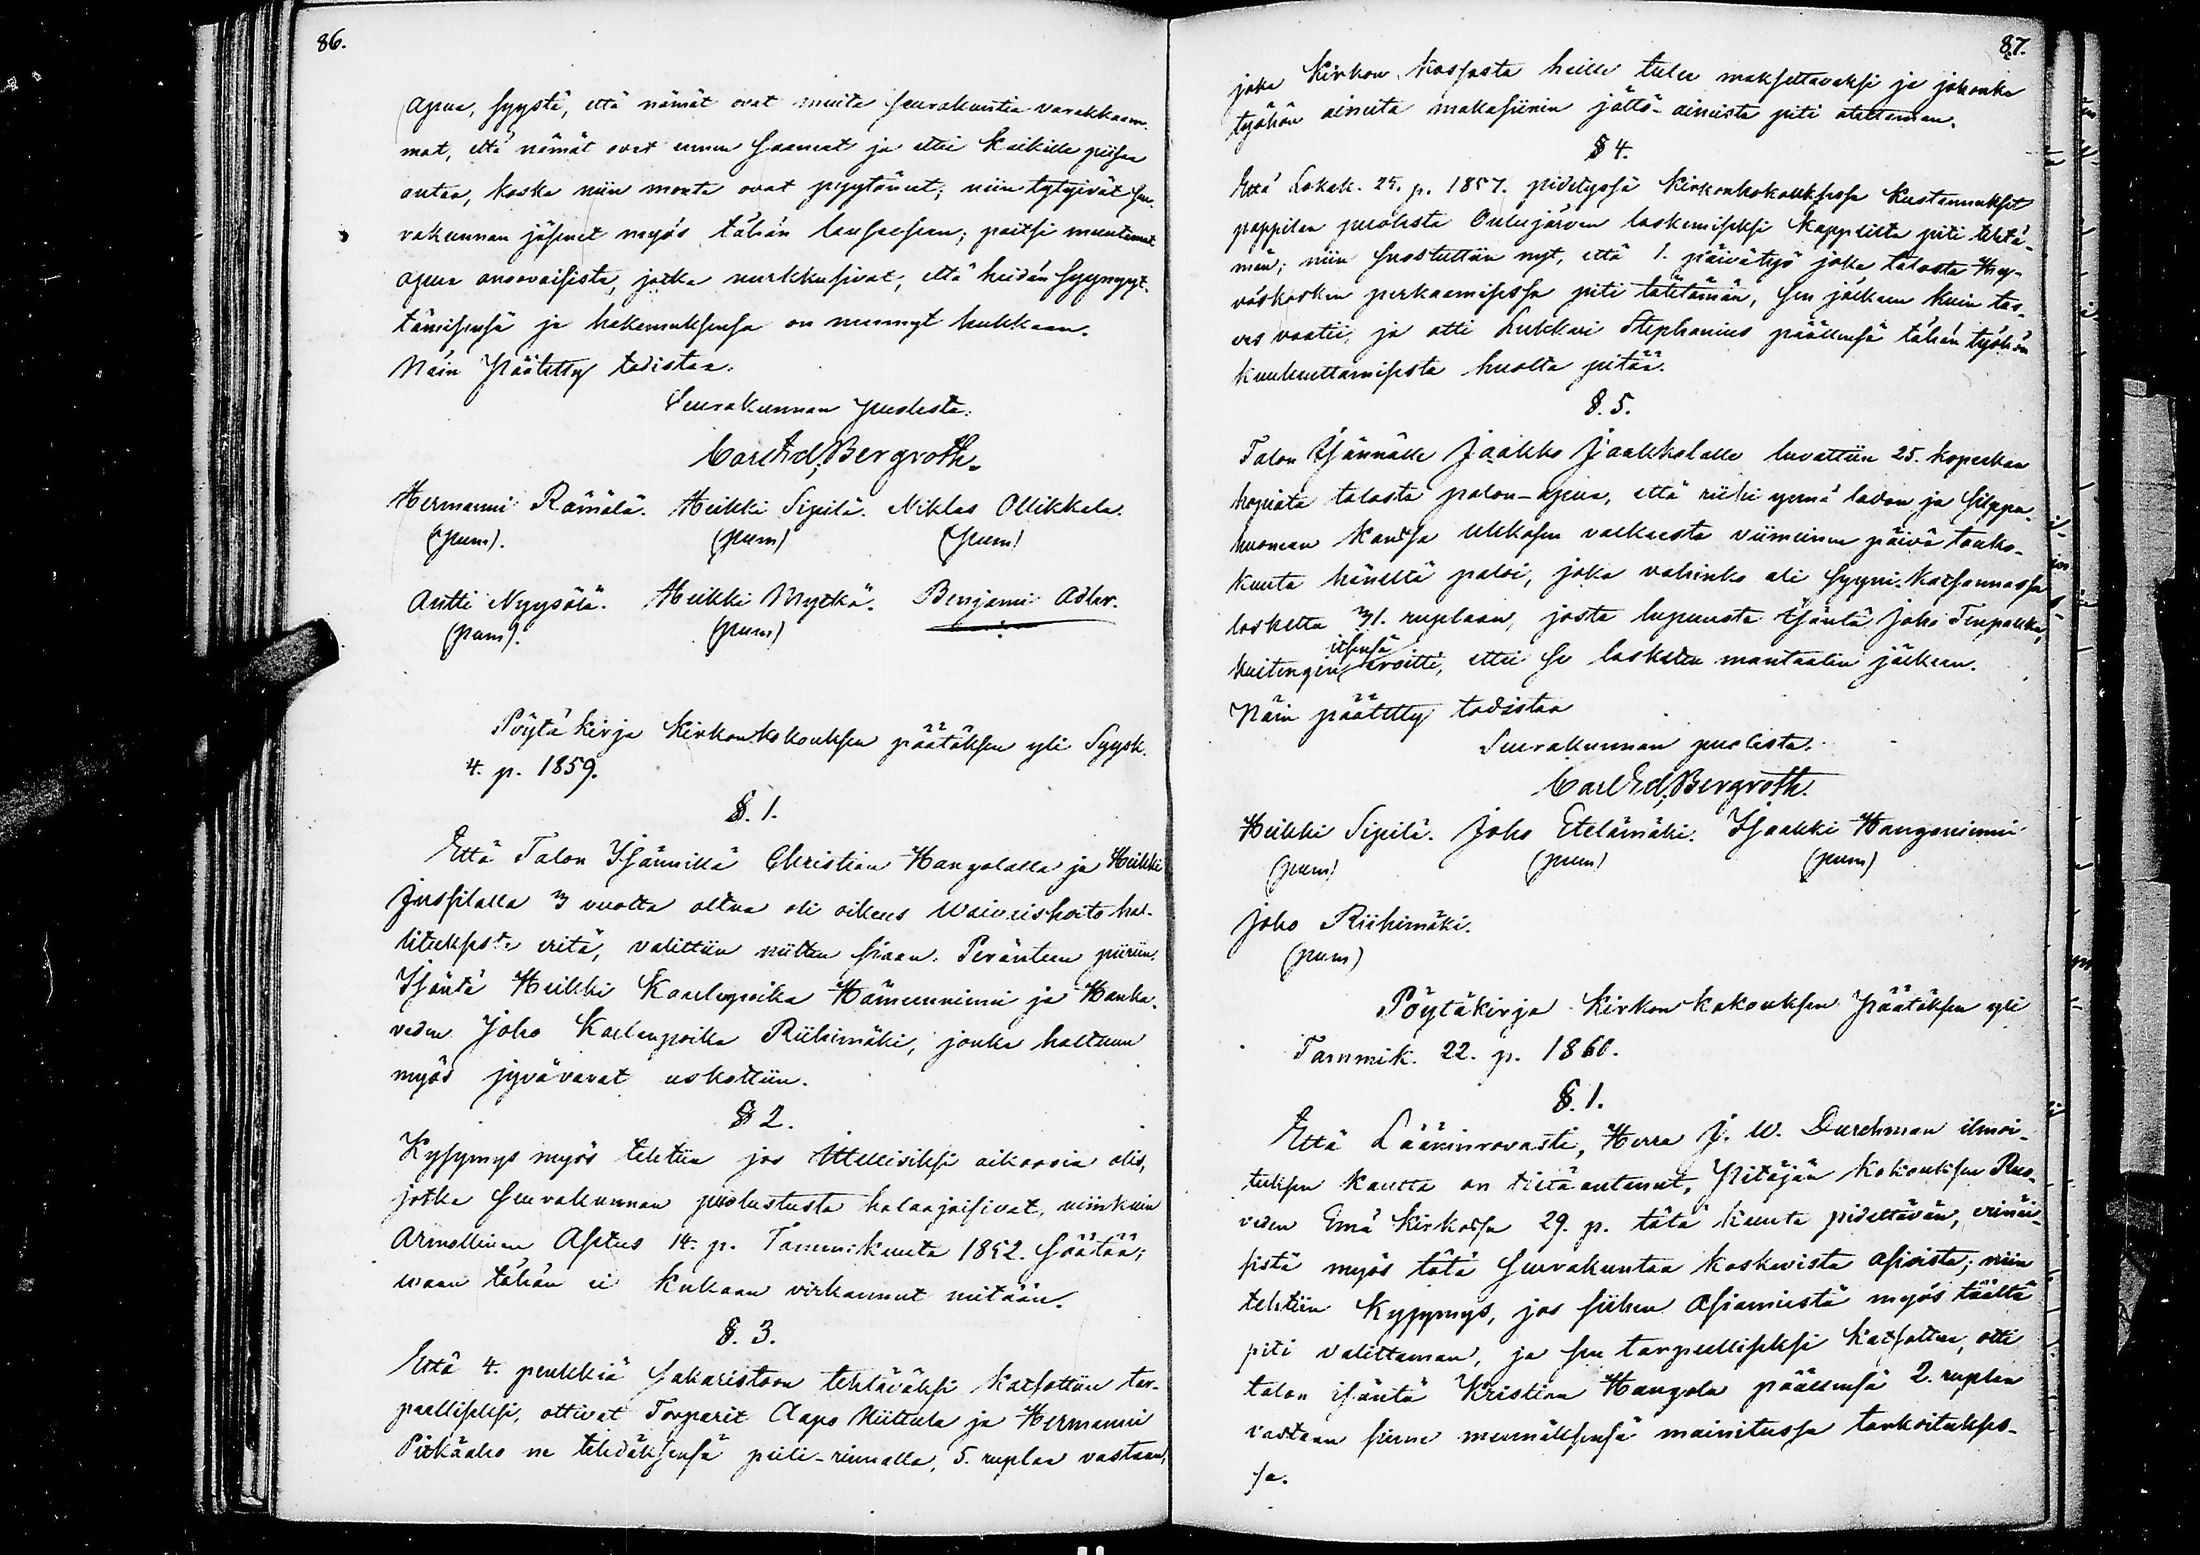 86.
apua, syystä, että nämät ovat muita seurakuntia varakkaam-
mat, että nämät ovat ennen saaneet ja ettei kaikille piisaa
antaa, koska niin monta ovat pyytäneet; niin tytyivät seu-
rakunnan jäsenet myös tähän lauseesen; paitsi muutamat
apua anovaisista, jotka nurkkusivat, että heidän syynyyt-
tämisensä ja hakemuksensa on mennyt hukkaan.
Näin Päätetty todistaa.
Seurakunnan puolesta:
Carl Ed. Bergroth.
Hermanni Rämälä. Heikki Sipilä. Niklas Ollikkala.
(pum). (pum) (pum)
Antti Nyysölä. Heikki Mytkä. Benjami Adler.
(pum). (pum)
Pöytä kirja Kirkonkokouksen päätöksen yli Syysk.
4. p. 1859.
§. 1.
Että Talon Isännillä Christian Hangolalla ja Heikki
Jussilalla 3 vuotta oltua oli oikeus Waivaishoito hal-
lituksesta eritä, valittiin niitten siaan. Peränteen piiriin
Isäntä Heikki Kaarlenpoika Hämeenniemi ja Hanka-
veden Joho Kaarlenpoika Riihimäki, jonka haltuun
myös jyvävarat uskottiin.
§ 2.
Kysymys myös tehtiin jos Itellisiksi aikovia olis,
jotka seurakunnan puolustusta halaajaisivat, niinkuin
Armollinen Asetus 14. p. Tammikuuta 1852. säätää;
waan tähän ei kukaan virkannut mitään.
§. 3.
Että 4. penkkiä Sakaristoon tehtäväksi katsottiin tar-
peelliseksi, ottivat Torparit Aapo Kiiltula ja Hermanni
Pitkäaho ne tehdäksensä peili-rinnalla, 5. ruplaa vastaan,
87.
joka Kirkon kassasta heille tulee maksettavaksi ja johonka
työhön aineita makasiinin jättö-aineista piti otettaman.
§ 4.
Että Lokak. 25. p. 1857. pidetyssä Kirkonkokouksessa kustannukset
pappilan puolesta Oulujärven laskemiseksi Kappelilta piti tehtä-
män; niin suostuttiin nyt, että 1. päivätyö joka talosta Käy-
väskosken perkaamisessa piti tehtämän, sen jälkeen kuin tar-
ves vaatii, ja otti Lukkari Stephanius päällensä tähän työhön
kuuluuttamisesta huolta pitää.
§. 5.
Talon Isännälle Jaakko Jaakkolalle luvattiin 25. kopeekan
hopiata talosta palon-apua, että riihi ynnä ladon ja silppu-
huoneen kanssa Ukkosen valkeasta viimeinen päivä touko-
kuuta häneltä paloi, joka vahinko oli syyni-katsannossa
laskettu 31. ruplaan, josta lupuusta Isäntä Joho Tenpakka,
itsensä
kuitengin eroitti, ettei se laskettu mantaalin jälkeen.
Näin päätetty todistaa
Seurakunnan puolesta.
Carl Ed. Bergroth.
Heikki Sipilä. Joho Etelämäki. Isaakki Hangoniemi
(pum) (pum) (pum)
Joho Riihimäki.
(pum)
Pöytäkirja Kirkon kokouksen Päätöksen yli
Tammik. 22. p. 1860.
§. 1.
Että Lääninrovasti, Herra J. W. Durchman ilmoi-
tuksen kautta on tietä antanut, Pitäjän kokouksen Ruo-
veden Emä Kirkossa 29. p. tätä kuuta pidettävän, erinäi-
sistä myös tätä seurakuntaa koskevista asioista; niin
tehtiin kysymys, jos siihen Asiamiestä myös täältä
piti valittaman, ja sen tarpeelliseksi katsottua, otti
talon isäntä Kristian Hangola päällensä 2. ruplaa
vastaan sinne mennäksensä mainitussa tarkoitukses-
sa.